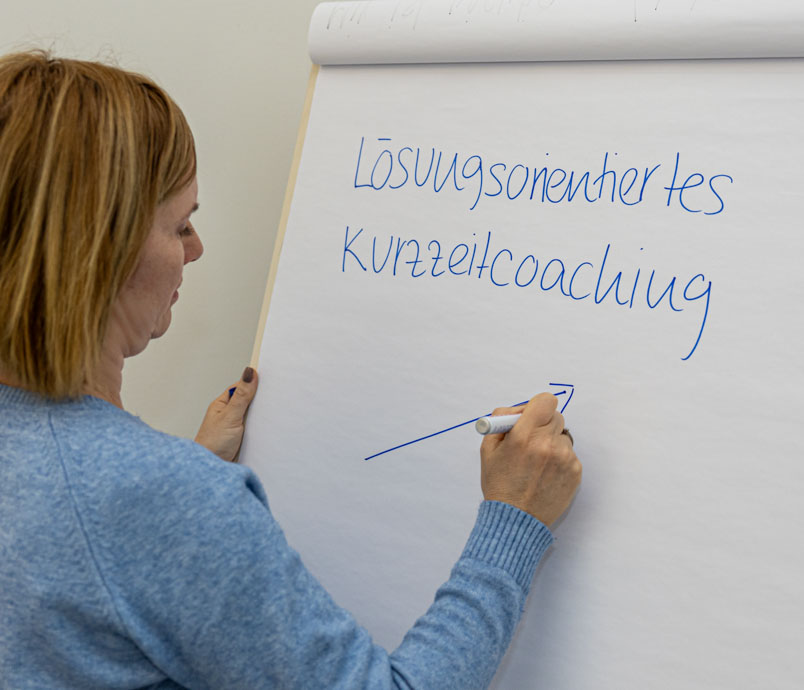 Lösungsorientiertes
Kurzzeitcoaching